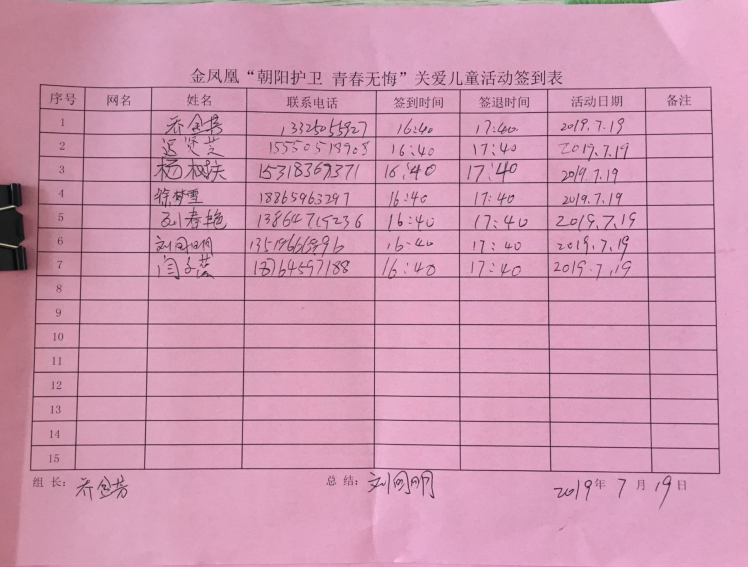 金凤凰“朝阳护卫 青春无悔”关爱儿童活动签到表
序号 网名 姓名 联系电话 签到时间 签退时间 活动日期 备注
1 乔金芳 16:40 17:40 2019.7.19
2 16:40 17:40 2019.7.19
3 15318369371 16:40 17:40 2019.7.19
4 徐梦雪 18865963297 16:40 17:40 2019.7.19
5 刘春艳 13864715236 16:40 17:40 2019.7.19
6 刘同明 16:40 17:40 2019.7.19
7 闫子蕊 18764597188 16:40 17:40 2019.7.19
8
9
10
11
12
13
14
15
组长：乔金芳 总结：刘同明 2019年7月19日